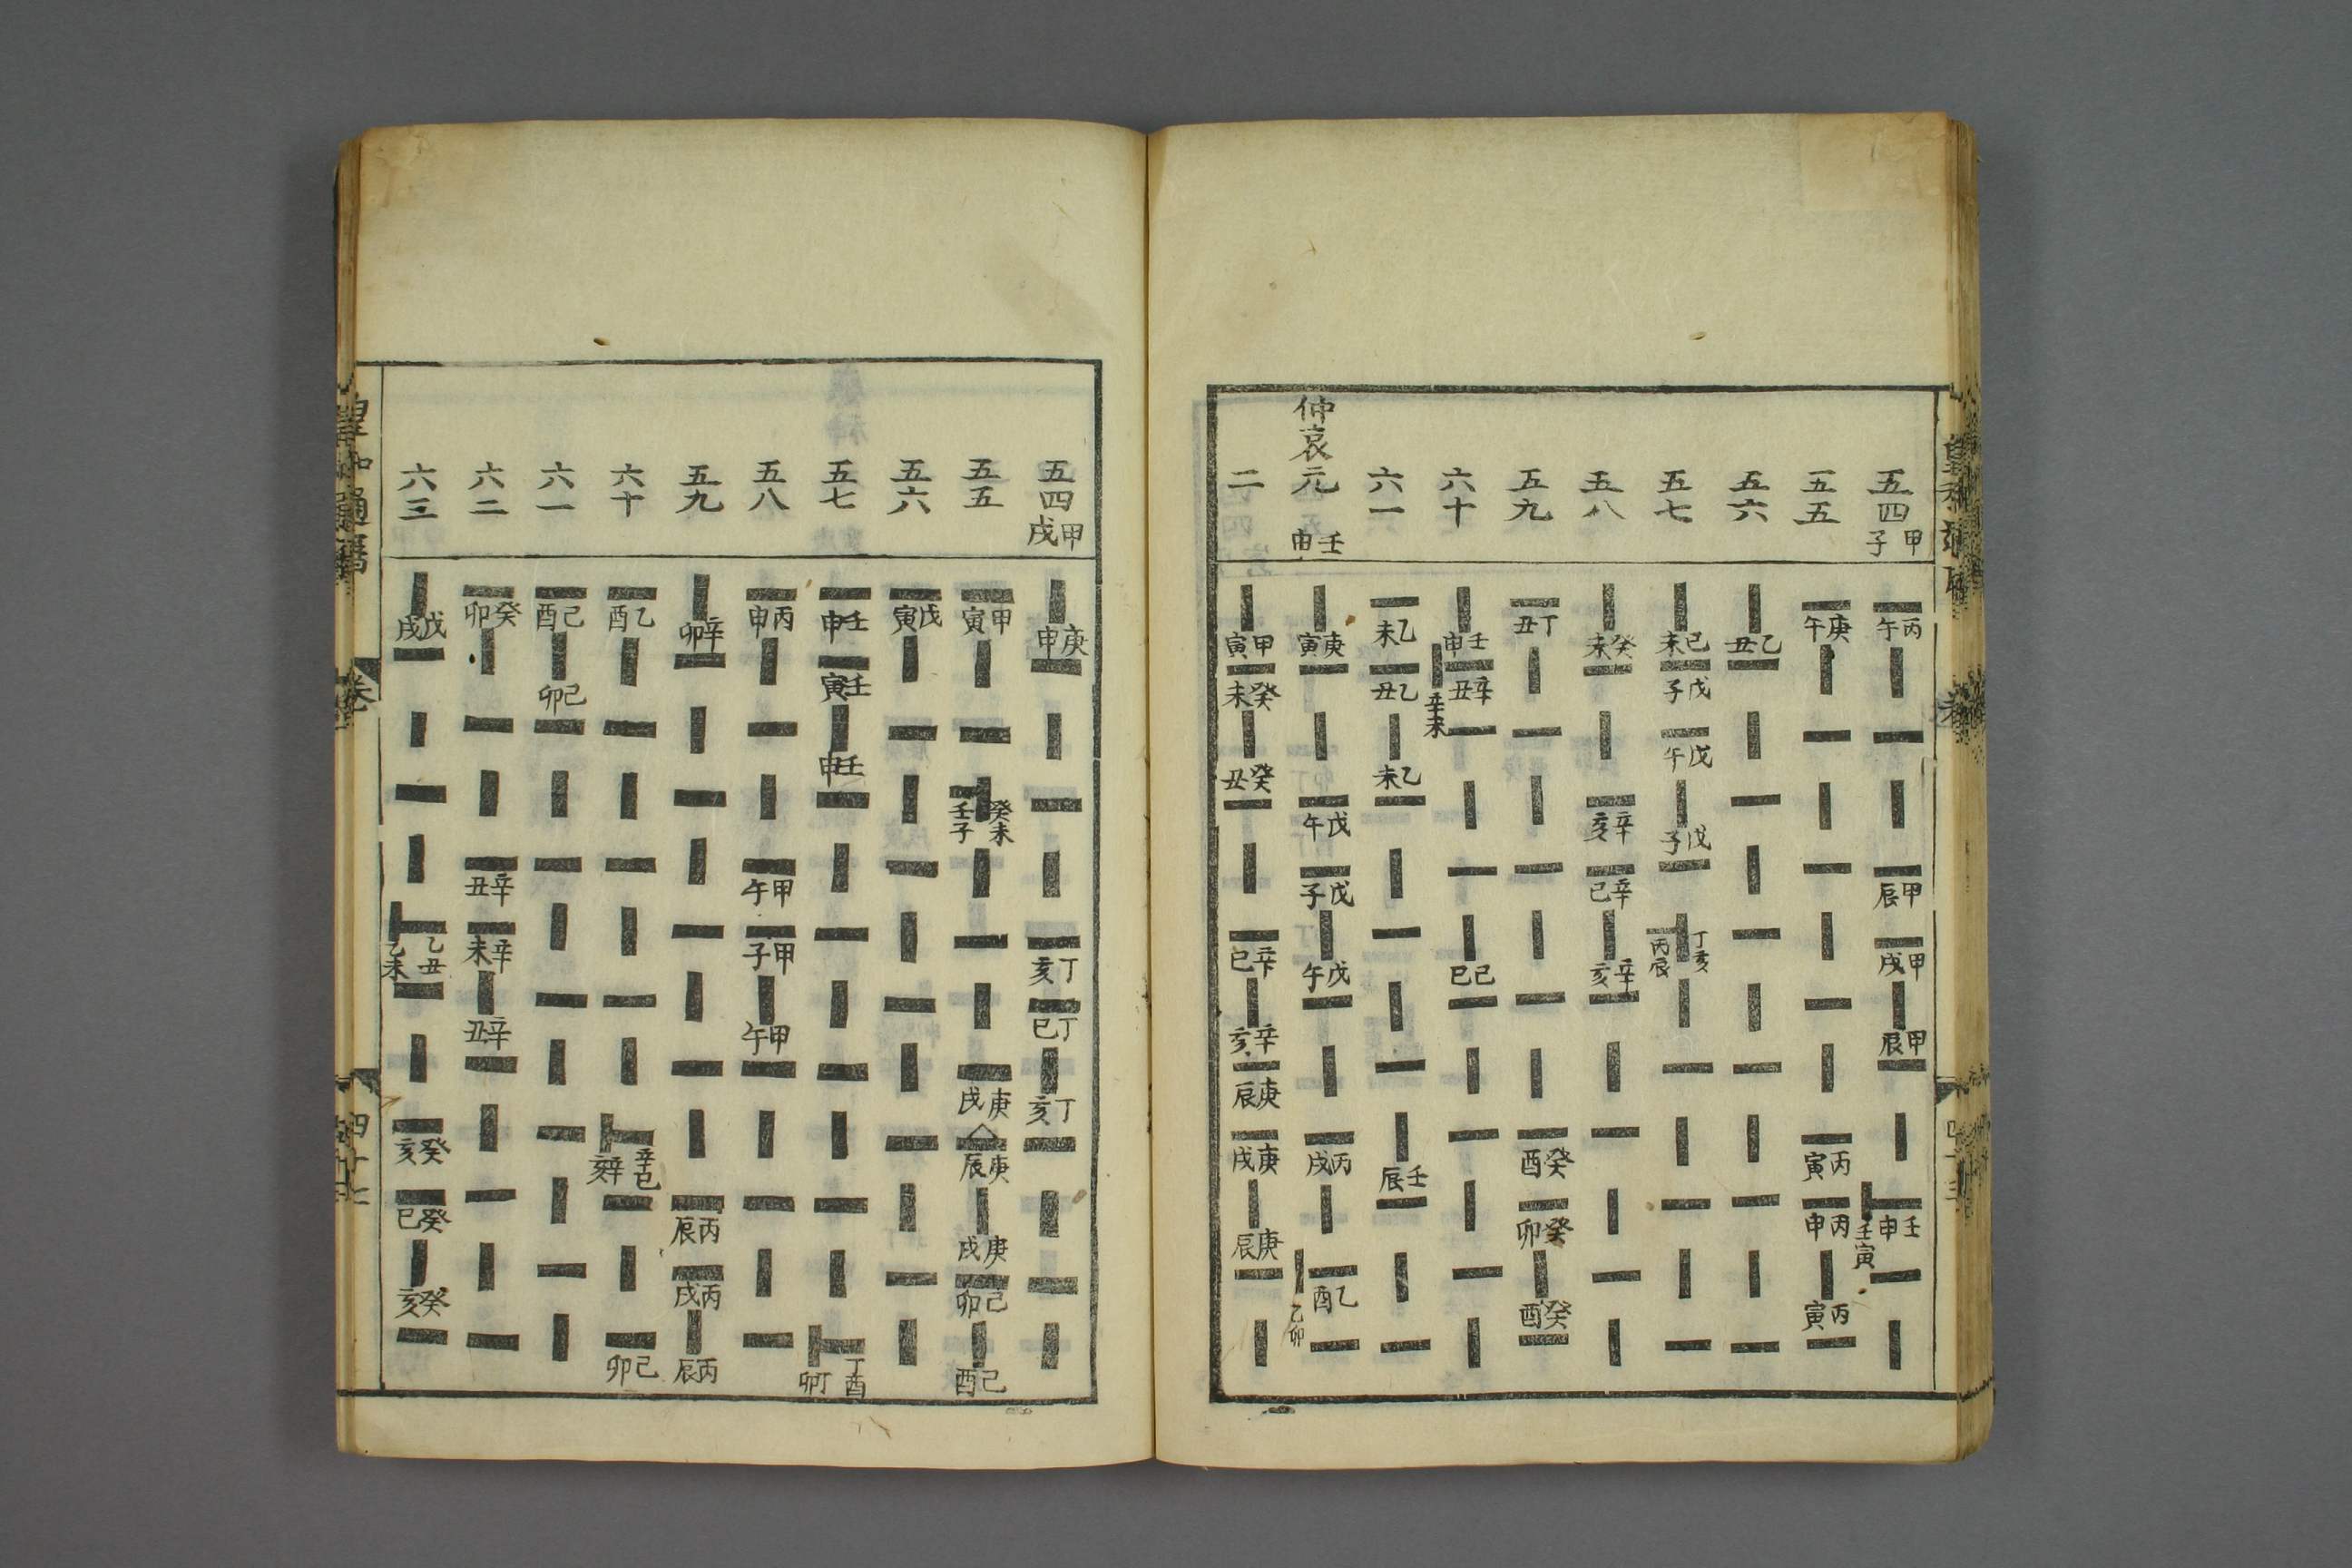 五四 甲子
丙午
甲辰
甲戌
甲辰
壬申
壬寅
五五
庚午
丙寅
丙申
丙寅
五六
乙丑
五七
己未
戊子
戊午
戊子
丁亥
丙辰
五八
癸未
辛亥
辛巳
辛亥
五九
丁丑
癸酉
癸卯
癸酉
六十
壬申
辛丑
辛未
己巳
六一
乙未
乙丑
乙未
壬辰
仲哀元 壬申
庚寅
戊午
戊子
戊午
丙戌
乙酉
乙卯
二
甲寅
癸未
癸丑
辛巳
辛亥
庚辰
庚戌
庚辰
五四 甲戌
庚申
丁亥
丁巳
丁亥
五五
甲寅
癸未
壬子
庚戌
庚辰
庚戌
己卯
己酉
五六
戊寅
五七
壬申
壬寅
壬申
丁酉
丁卯
五八
丙申
甲午
甲子
甲午
五九
辛卯
丙辰
丙戌
丙辰
六十
乙酉
辛巳
辛亥
己卯
六一
己酉
己卯
六二
癸卯
辛丑
辛未
辛丑
六三
戊戌
乙丑
乙未
癸亥
癸巳
癸亥
皇和通曆
卷
四十七